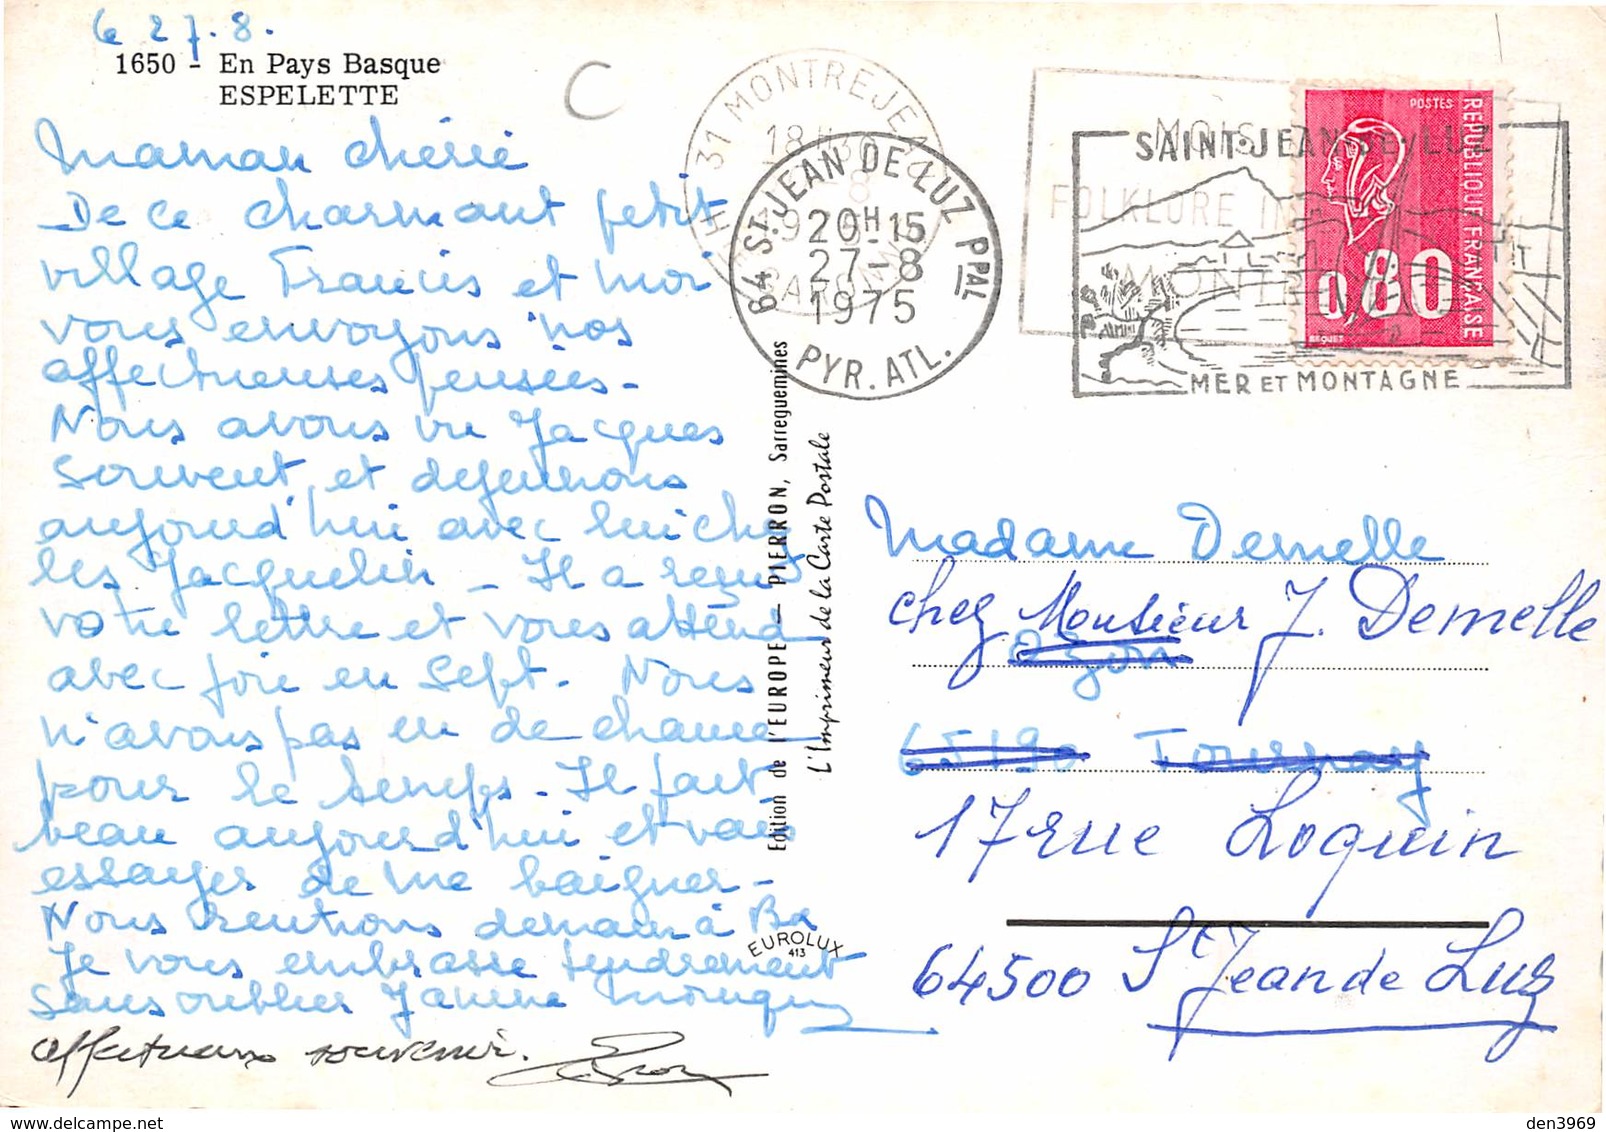 le 27.8.
1650 - En Pays Basque
ESPELETTE
Maman chérie
De ce charmant petit
village Francis et moi
vous envoyons nos
affectueuses pensées -
Nous avons vu Jacques
souvent et dejeunons
aujourd'hui avec lui chez
les Jacquelin - Il a reçu
votre lettre et vous attend
avec joie en Sept. Nous
n'avons pas eu de chance
pour le temps - Il fait
beau aujourd'hui et vais
essayer de me baigner -
Nous rentrons demain à Bx
Je vous embrasse tendrement
sans oublier Janine
affectueux souvenir.
31 MONTREJEAU
18H30
64 ST-JEAN DE LUZ PPAL
20H15
27-8
1975
PYR. ATL.
MOIS
FOLKLORE
SAINT-JEAN-DE-LUZ
MER ET MONTAGNE
POSTES
REPUBLIQUE FRANÇAISE
0,80
BEQUET
Edition de l'EUROPE - PIERRON, Sarreguemines
L'Imprimeur de la Carte Postale
EUROLUX
413
Madame Demelle
chez Monsieur J. Demelle
Ozon
65190 Tournay
17 rue Loquin
64500 St Jean de Luz
den3969